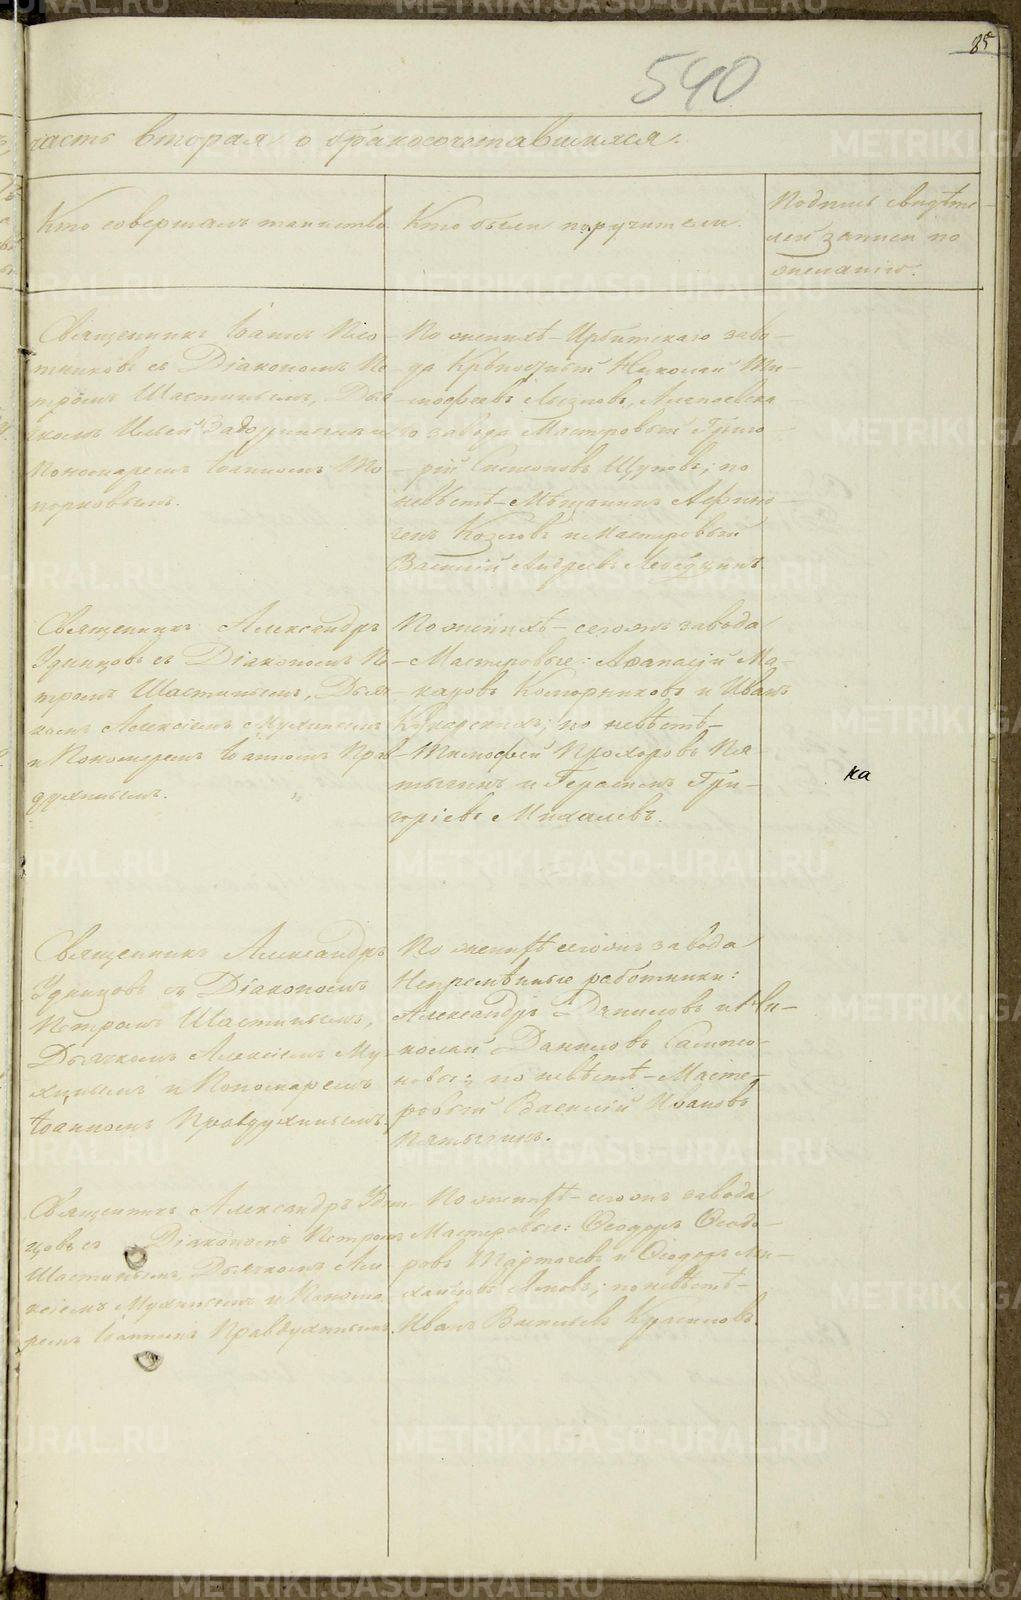 85
540
часть вторая о бракосочетавшихся.
Кто совершалъ таинство
Кто были поручители.
Подпись свидѣте-
лей записи по
желанію.
Священникъ Іоаннъ Пло-
тниковъ съ Діакономъ Пе-
тромъ Шастинымъ, Дья-
чкомъ Ильей
Пономаремъ Іоанномъ То-
порковымъ.
По женихѣ – Ирбитскаго заво-
да Крѣпостный Николай Ти-
мофеевъ Алапаевска-
го завода Мастеровый Григо-
рій Симоновъ Щуповъ; по
невѣстѣ – Мѣщанинъ Афино-
генъ Козловъ и Мастеровый
Василій Андреевъ
Священникъ Александръ
Удинцовъ съ Діакономъ Пе-
тромъ Шастинымъ, Дьяч-
комъ Алексіемъ Мухинымъ
и Пономаремъ Іоанномъ Прав-
духинымъ.
По женихѣ – сегожъ завода
Мастеровые: Афанасій Ма-
каровъ Коморниковъ и Иванъ
по невѣстѣ –
Тимофей Прохоровъ Пя-
тыгинъ и Герасимъ Гри-
горіевъ Михалевъ.
ка
Священникъ Александръ
Удинцовъ съ Діакономъ
Петромъ Шастинымъ,
Дьячкомъ Алексіемъ Му-
хинымъ и Пономаремъ
Іоанномъ Правдухинымъ.
По женихѣ сегожъ завода
Непремѣнные работники:
Александръ Даниловъ и Ни-
колай Даниловъ
по невѣстѣ – Масте-
ровый Василій Ивановъ
Пятыгинъ.
Священникъ Александръ Удин-
цовъ съ Діакономъ Петромъ
Шастинымъ, Дьячкомъ Але-
ксіемъ Мухинымъ и Понома-
ремъ Іоанномъ Правдухинымъ.
По женихѣ – сегожъ завода
Мастеровые: Ѳеодоръ Ѳеодо-
ровъ и Ѳеодоръ Ми-
хайловъ по невѣстѣ –
Иванъ Васильевъ